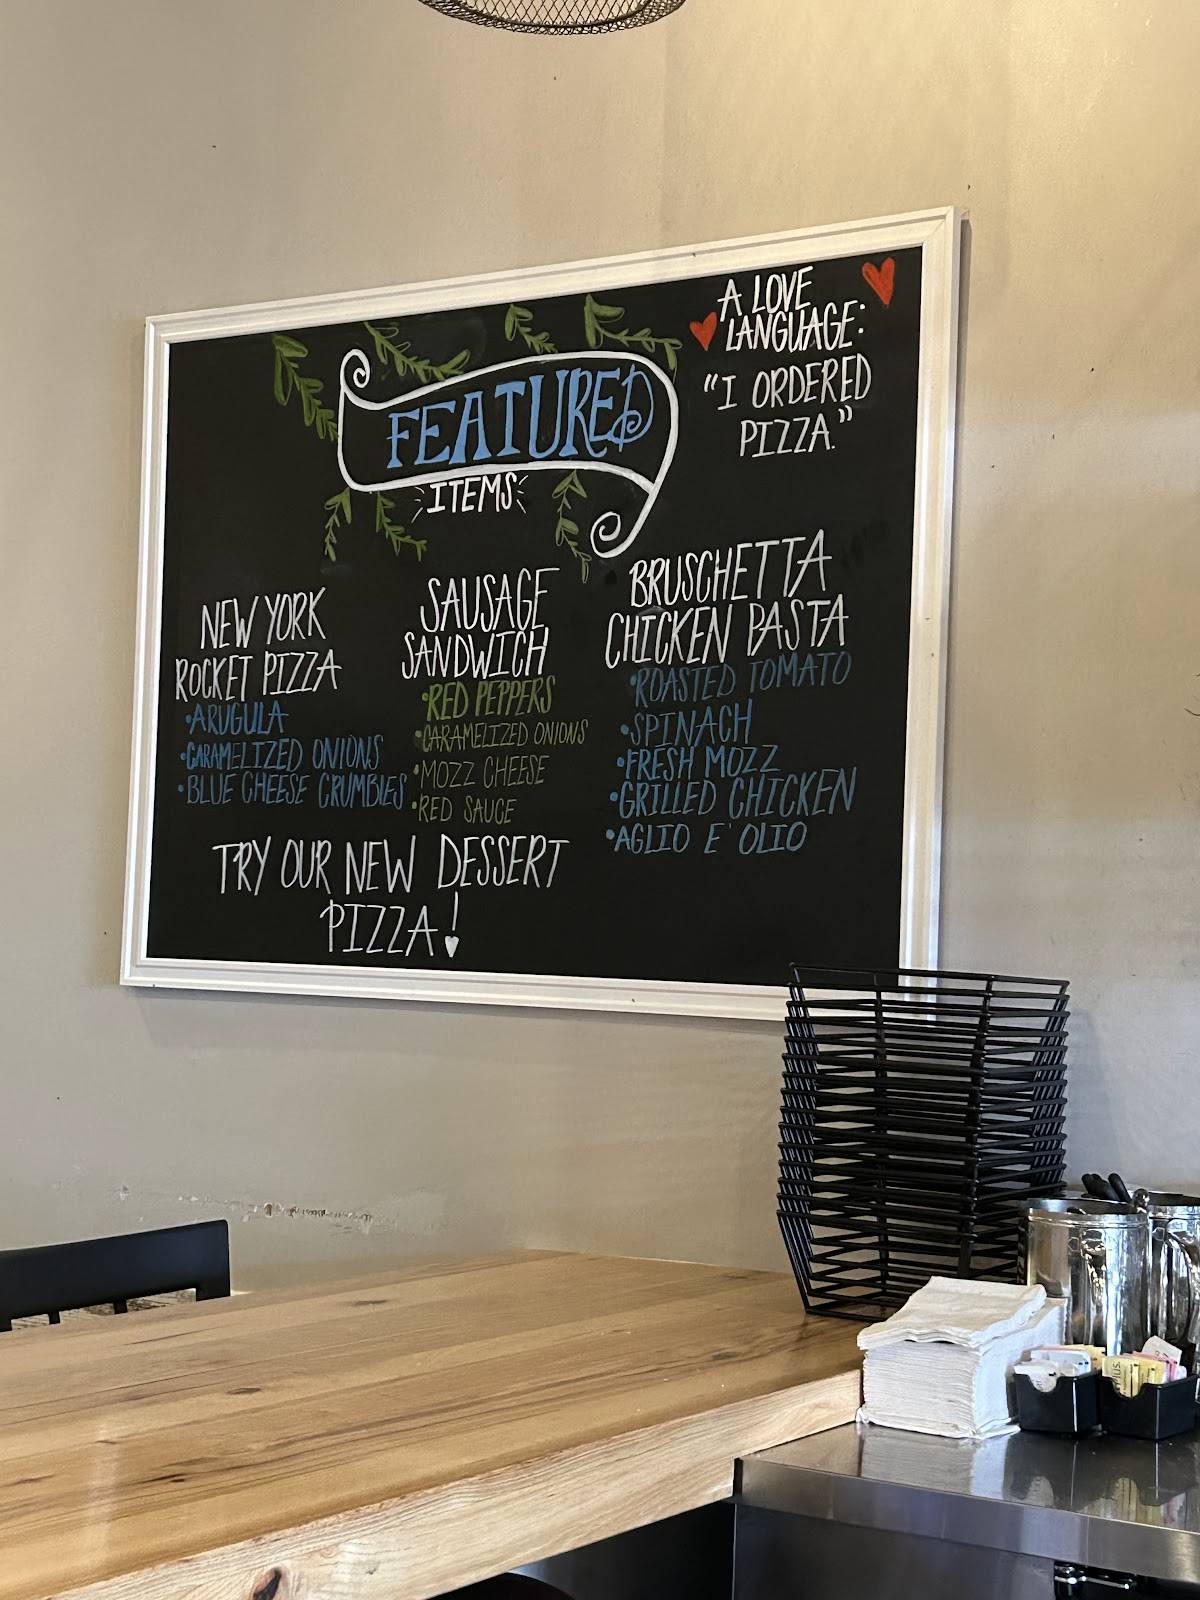 A LOVE
LANGUAGE:
"I ORDERED
PIZZA."
FEATURED
ITEMS
NEW YORK
ROCKET PIZZA
•ARUGULA
•CARAMELIZED ONIONS
•BLUE CHEESE CRUMBLES
SAUSAGE
SANDWICH
•RED PEPPERS
•CARAMELIZED ONIONS
•MOZZ CHEESE
•RED SAUCE
BRUSCHETTA
CHICKEN PASTA
•ROASTED TOMATO
•SPINACH
•FRESH MOZZ
•GRILLED CHICKEN
•AGLIO E' OLIO
TRY OUR NEW DESSERT
PIZZA!